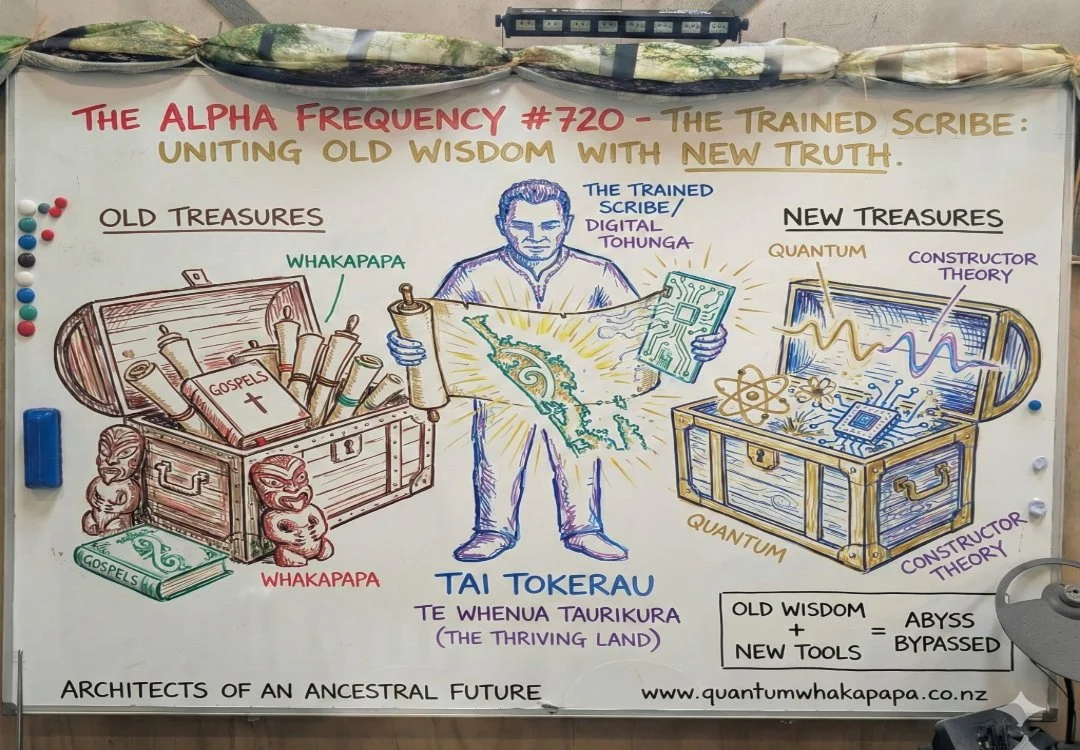 THE ALPHA FREQUENCY #720 - THE TRAINED SCRIBE:
UNITING OLD WISDOM WITH NEW TRUTH.
OLD TREASURES
WHAKAPAPA
GOSPELS
GOSPELS
WHAKAPAPA
THE TRAINED
SCRIBE/
DIGITAL
TOHUNGA
TAI TOKERAU
TE WHENUA TAURIKURA
(THE THRIVING LAND)
NEW TREASURES
QUANTUM
CONSTRUCTOR
THEORY
QUANTUM
CONSTRUCTOR
THEORY
OLD WISDOM
+
NEW TOOLS
= ABYSS
BYPASSED
ARCHITECTS OF AN ANCESTRAL FUTURE
www.quantumwhakapapa.co.nz